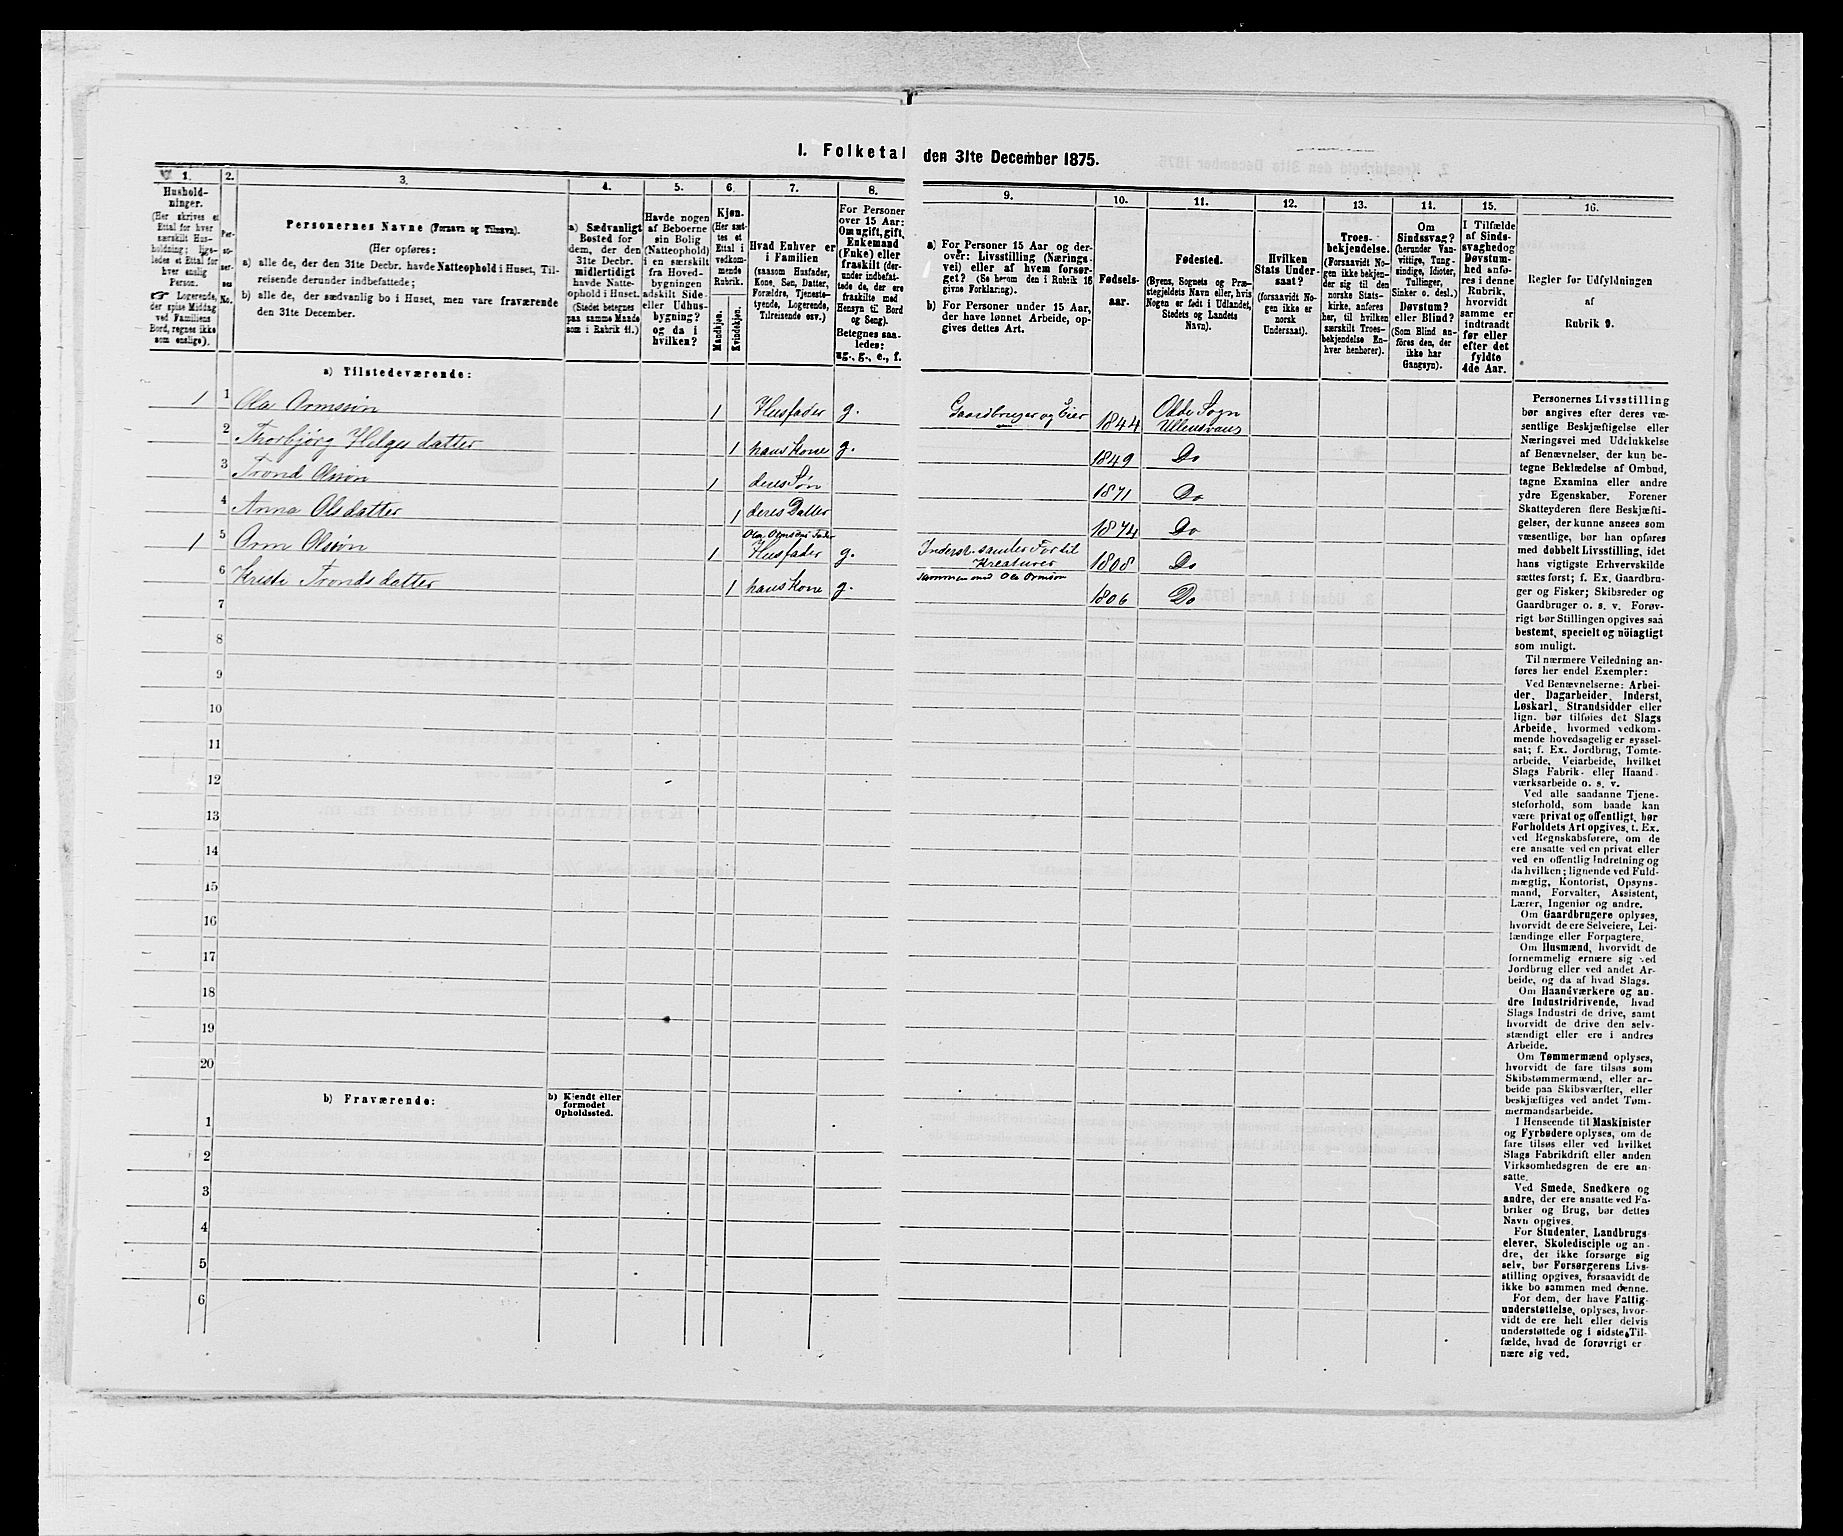 I. Folketal den 31te December 1875.
1.
Hushold-
ninger.
(Her skrives et
Ettal for hver
særskilt Hus-
holdning; lige-
ledes et Ettal for
hver enslig
Person.
Logerende,
der spise Middag
ved Familiens
Bord, regnes ikke
som enslige).
2.
Per-
so-
ner-
nes
No.
3.
Personernes Navne (Fornavn og Tilnavn).
(Her opføres:
a) alle de, der den 31te Decbr. havde Natteophold i Huset, Til-
reisende derunder indbefattede;
b) alle de, der sædvanlig bo i Huset, men vare fraværende
den 31te December.
4.
a) Sædvanligt
Bosted for
dem, der den
31te Decbr.
midlertidigt
havde Natte-
ophold i Huset.
(Stedet betegnes
paa samme Maade
som i Rubrik 11.)
5.
Havde nogen
af Beboerne
sin Bolig
(Natteophold)
i en særskilt
fra Hoved-
bygningen
adskilt Side-
eller Udhus-
bygning?
og da i
hvilken?
6.
Kjøn.
(Her sæt-
tes et
Ettal i
vedkom-
mende
Rubrik.
Mandkjøn.
Kvindekjøn.
7.
Hvad Enhver er
i Familien
(saasom Husfader,
Kone, Søn, Datter,
Forældre, Tjeneste-
tyende, Logerende,
Tilreisende osv.)
8.
For Personer
over 15 Aar:
Om ugift, gift,
Enkemand
(Enke) eller
fraskilt (der-
under indbefat-
tede de, der ere
fraskilte med
Hensyn til Bord
og Seng).
Betegnes saa-
ledes:
ug., g., e., f.
9.
a) For Personer 15 Aar og der-
over: Livsstilling (Nærings-
vei) eller af hvem forsør-
get? (Se herom den i Rubrik 16
givne Forklaring).
b) For Personer under 15 Aar,
der have lønnet Arbeide, op-
gives dettes Art.
10.
Fødsels-
aar.
11.
Fødested.
(Byens, Sognets og Præ-
stegjeldets Navn eller, hvis
Nogen er født i Udlandet,
Stedets og Landets
Navn).
12.
Hvilken
Stats Under-
saat?
(forsaavidt No-
gen ikke er
norsk
Undersaat).
13.
Troes-
bekjendelse.
(Forsaavidt No-
gen ikke bekjen-
der sig til den
norske Stats-
kirke, anføres
her, til hvilken
særskilt Troes-
bekjendelse En-
hver henhører).
14.
Om
Sindssvag?
(herunder Van-
vittige, Tung-
sindige, Idioter,
Tullinger,
Sinker o. desl.)
Døvstum?
eller Blind?
(Som Blind an-
föres den, der
ikke har
Gangsyn).
15.
I Tilfælde
af Sinds-
svaghed og
Døvstum-
hed anfø-
res i denne
Rubrik,
hvorvidt
samme er
indtraadt
før eller
efter det
fyldte
4de Aar.
16.
Regler for Udfyldningen
af
Rubrik 9.
a) Tilstedeværende:
1 1 Ola Ormssön 1 Husfader g. Gaardbruger og Eier 1844 Odde Sogn Ullensvans
2 Thorbjörg Helges datter 1 hans Kone g. 1849 Do
3 Trond Olssön 1 deres Søn 1871 Do
4 Anna Olsdatter 1 deres Datter 1874 Do
1 5 Orm Olssön 1 Ola Ormsöns Fader Husfader g. Inderst. samler For til Kreaturer 1808 Do
6 Kristi Tronds datter 1 hans Kone g. sammen med Ola Ormsön 1806 Do
7
8
9
10
11
12
13
14
15
16
17
18
19
20
b) Fraværende:
b) Kjendt eller
formodet
Opholdssted.
1
2
3
4
5
6
Personernes Livsstilling
bør angives efter deres væ-
sentlige Beskjæftigelse eller
Næringsvei med Udelukkelse
af Benævnelser, der kun be-
tegne Beklædelse af Ombud,
tagne Examina eller andre
ydre Egenskaber. Forener
Skatteyderen flere Beskjæfti-
gelser, der kunne ansees som
væsentlige, bør han opføres
med dobbelt Livsstilling, idet
hans vigtigste Erhvervskilde
sættes først; f. Ex. Gaardbru-
ger og Fisker; Skibsreder og
Gaardbruger o. s. v. Forøv-
rigt bør Stillingen opgives saa
bestemt, specielt og nöiagtigt
som muligt.
Til nærmere Veiledning an-
føres her endel Exempler:
Ved Benævnelserne: Arbei-
der, Dagarbeider, Inderst,
Løskarl, Strandsidder eller
lign. bør tilføies det Slags
Arbeide, hvormed vedkom-
mende hovedsagelig er syssel-
sat; f. Ex. Jordbrug, Tomte-
arbeide, Veiarbeide, hvilket
Slags Fabrik- eller Haand-
værksarbeide o. s. v.
Ved alle saadanne Tjene-
steforhold, som baade kan
være privat og offentligt, bør
Forholdets Art opgives, t. Ex.
ved Regnskabsførere, om de
ere ansatte ved en privat eller
ved en offentlig Indretning og
da hvilken; lignende ved Fuld-
mægtig, Kontorist, Opsyns-
mand, Forvalter, Assistent,
Lærer, Ingeniør og andre.
Om Gaardbrugere oplyses,
hvorvidt de ere Selveiere, Lei-
lændinge eller Forpagtere.
Om Husmænd, hvorvidt de
fornemmelig ernære sig ved
Jordbrug eller ved andet Ar-
beide, og da af hvad Slags.
Om Haandværkere og an-
dre Industridrivende, hvad
Slags Industri de drive, samt
hvorvidt de drive den selv-
stændigt eller ere i andres
Arbeide.
Om Tømmermænd oplyses,
hvorvidt de fare tilsøs som
Skibstømmermænd, eller ar-
beide paa Skibsværfter, eller
beskjæftiges ved andet Tøm-
mermandsarbeide.
I Henseende til Maskinister
og Fyrbødere oplyses, om de
fare tilsøs eller ved hvilket
Slags Fabrikdrift eller anden
Virksomhedsgren de ere an-
satte.
Ved Smede, Snedkere og
andre, der ere ansatte ved Fa-
briker og Brug, bør dettes
Navn opgives.
For Studenter, Landbrugs-
elever, Skoledisciple og an-
dre, der ikke forsørge sig
selv, bør Forsørgerens Livs-
stilling opgives, forsaavidt de
ikke bo sammen med denne.
For dem, der have Fattig-
understøttelse, oplyses, hvor-
vidt de ere helt eller delvis
understøttede og i sidste Til-
fælde, hvad de forøvrigt er-
nære sig ved.